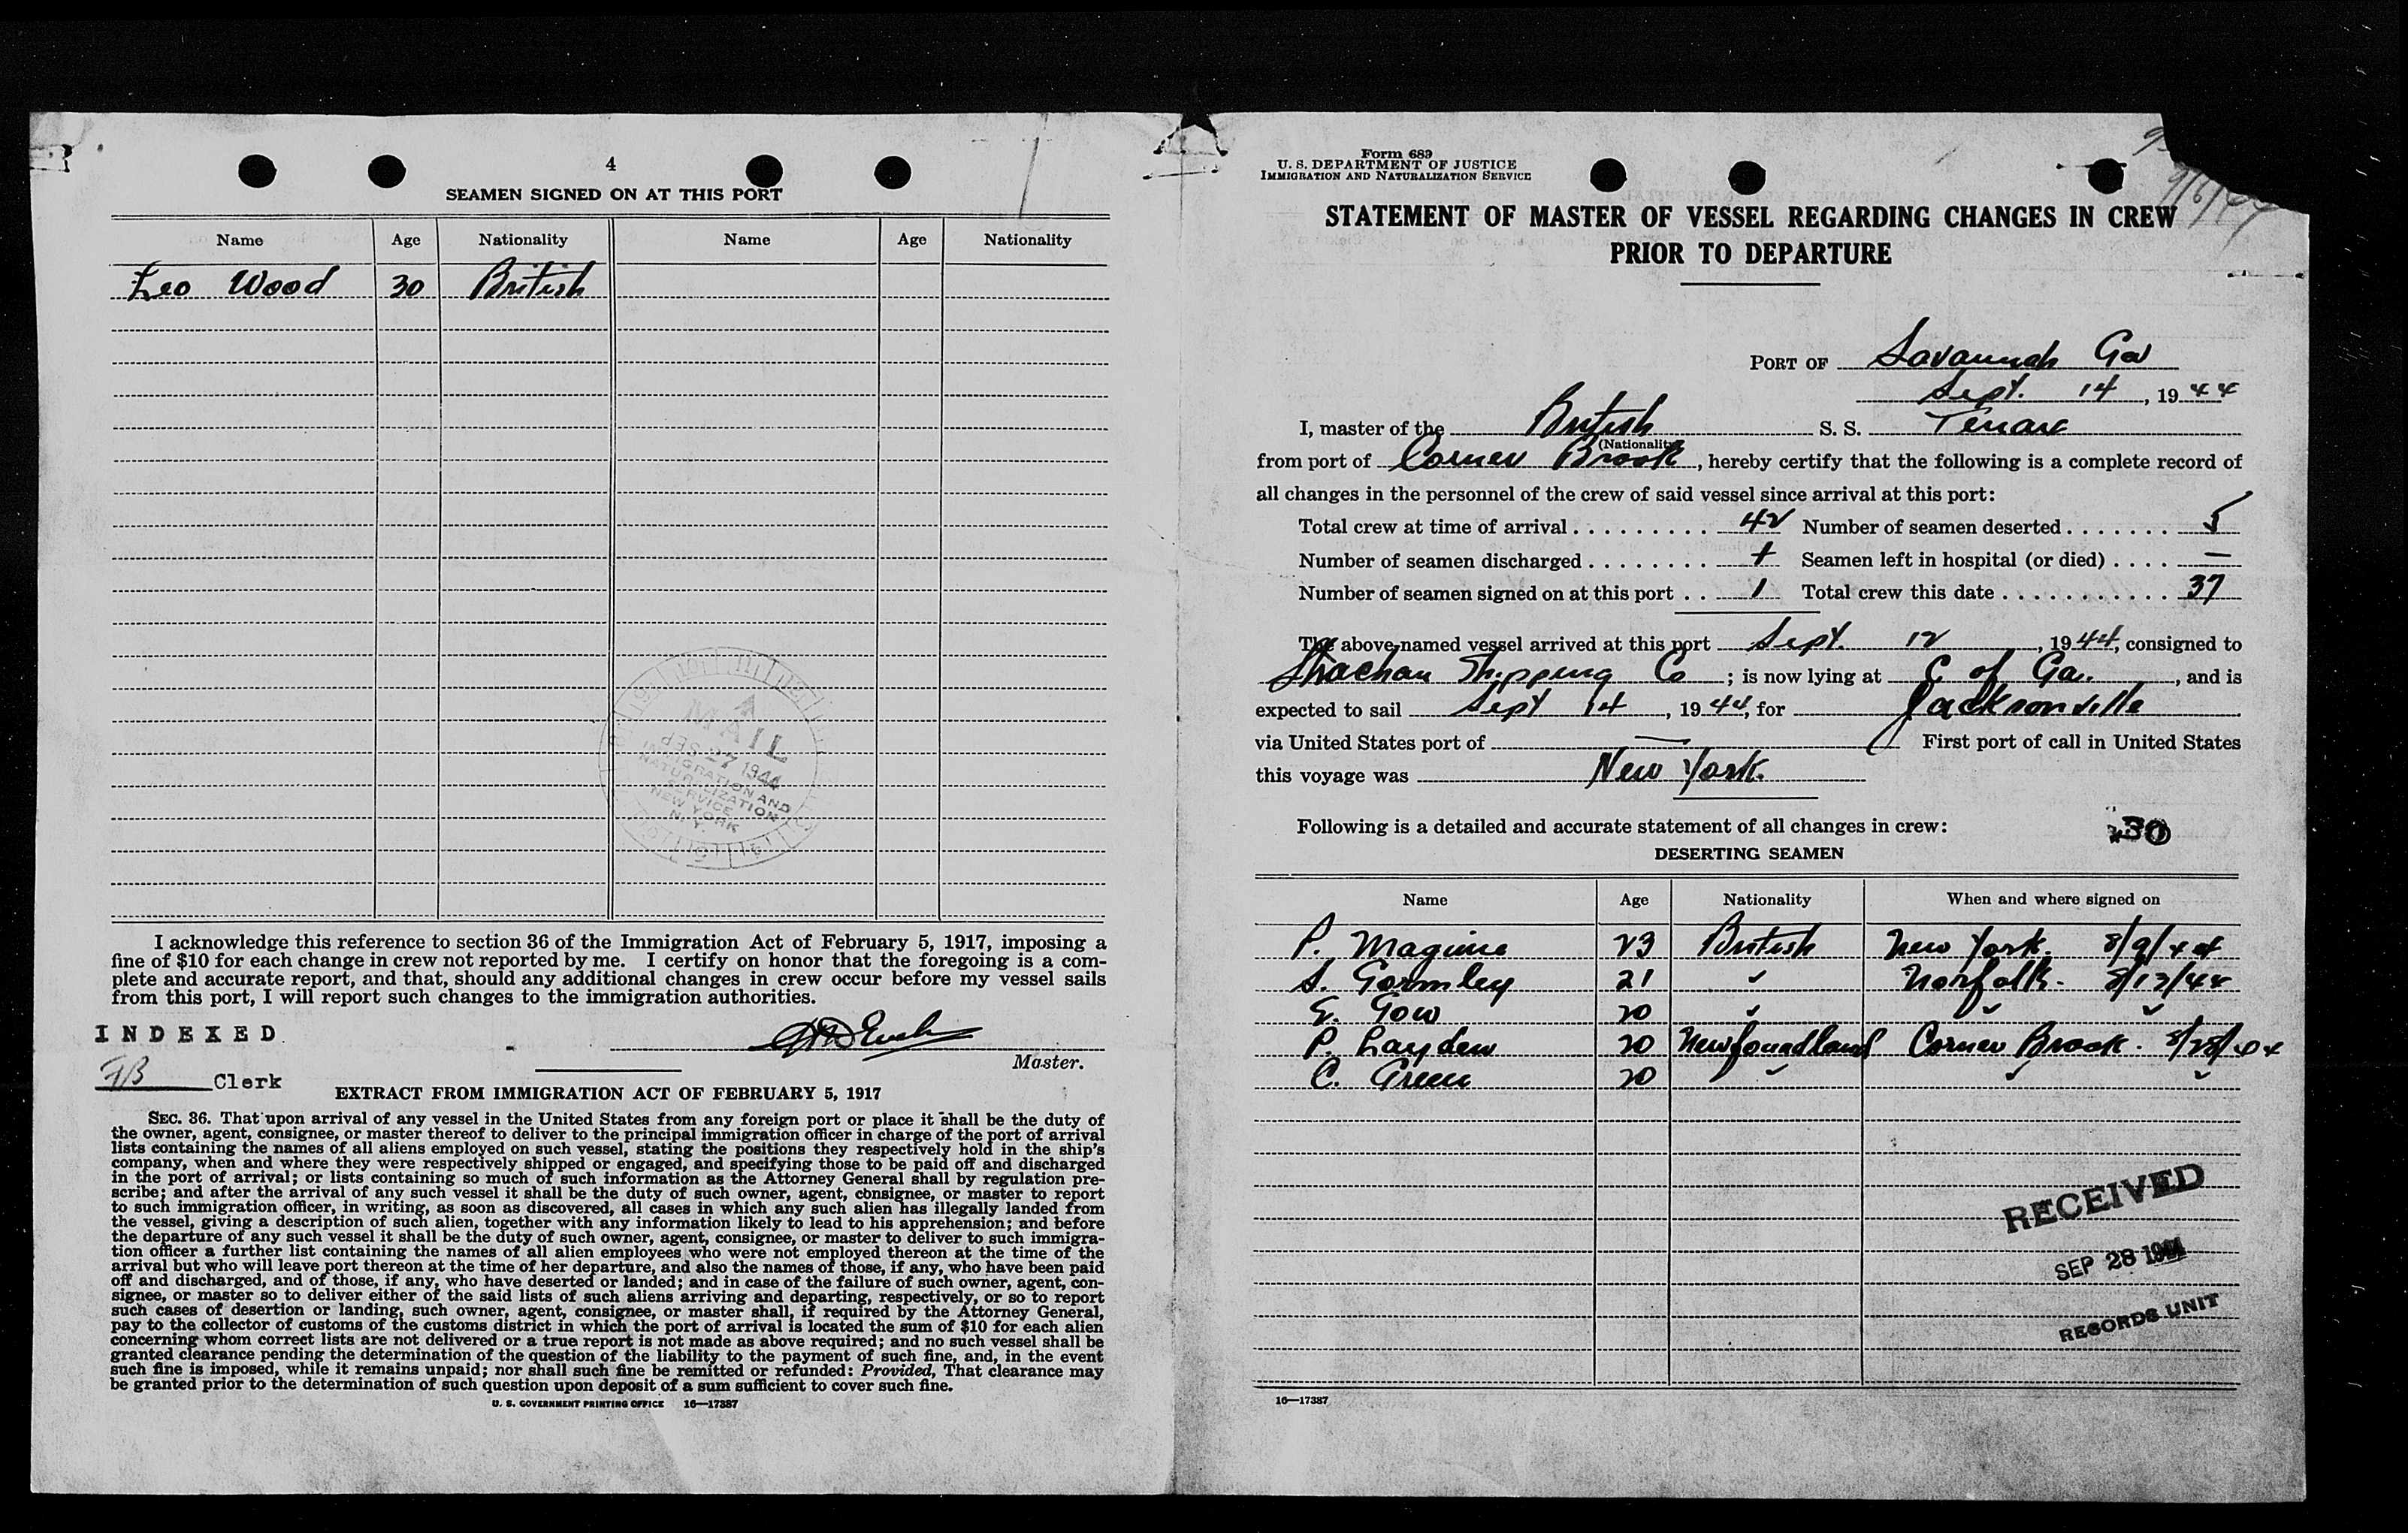 4
SEAMEN SIGNED ON AT THIS PORT
Name Age Nationality Name Age Nationality
Leo Wood 30 British
MAIL
SEP 27 1944
IMMIGRATION AND
NATURALIZATION
SERVICE
NEW YORK
N. Y.
I acknowledge this reference to section 36 of the Immigration Act of February 5, 1917, imposing a
fine of $10 for each change in crew not reported by me. I certify on honor that the foregoing is a com-
plete and accurate report, and that, should any additional changes in crew occur before my vessel sails
from this port, I will report such changes to the immigration authorities.
INDEXED
Master.
Clerk
EXTRACT FROM IMMIGRATION ACT OF FEBRUARY 5, 1917
SEC. 36. That upon arrival of any vessel in the United States from any foreign port or place it shall be the duty of
the owner, agent, consignee, or master thereof to deliver to the principal immigration officer in charge of the port of arrival
lists containing the names of all aliens employed on such vessel, stating the positions they respectively hold in the ship's
company, when and where they were respectively shipped or engaged, and specifying those to be paid off and discharged
in the port of arrival; or lists containing so much of such information as the Attorney General shall by regulation pre-
scribe; and after the arrival of any such vessel it shall be the duty of such owner, agent, consignee, or master to report
to such immigration officer, in writing, as soon as discovered, all cases in which any such alien has illegally landed from
the vessel, giving a description of such alien, together with any information likely to lead to his apprehension; and before
the departure of any such vessel it shall be the duty of such owner, agent, consignee, or master to deliver to such immigra-
tion officer a further list containing the names of all alien employees who were not employed thereon at the time of the
arrival but who will leave port thereon at the time of her departure, and also the names of those, if any, who have been paid
off and discharged, and of those, if any, who have deserted or landed; and in case of the failure of such owner, agent, con-
signee, or master so to deliver either of the said lists of such aliens arriving and departing, respectively, or so to report
such cases of desertion or landing, such owner, agent, consignee, or master shall, if required by the Attorney General,
pay to the collector of customs of the customs district in which the port of arrival is located the sum of $10 for each alien
concerning whom correct lists are not delivered or a true report is not made as above required; and no such vessel shall be
granted clearance pending the determination of the question of the liability to the payment of such fine, and, in the event
such fine is imposed, while it remains unpaid; nor shall such fine be remitted or refunded: Provided, That clearance may
be granted prior to the determination of such question upon deposit of a sum sufficient to cover such fine.
U. S. GOVERNMENT PRINTING OFFICE 16—17387
Form 689
U. S. DEPARTMENT OF JUSTICE
IMMIGRATION AND NATURALIZATION SERVICE
STATEMENT OF MASTER OF VESSEL REGARDING CHANGES IN CREW
PRIOR TO DEPARTURE
PORT OF Savannah Ga
Sept. 14, 1944
I, master of the British S. S. Tenax
(Nationality)
from port of Corner Brook, hereby certify that the following is a complete record of
all changes in the personnel of the crew of said vessel since arrival at this port:
Total crew at time of arrival 42 Number of seamen deserted 5
Number of seamen discharged + Seamen left in hospital (or died) —
Number of seamen signed on at this port 1 Total crew this date 37
The above-named vessel arrived at this port Sept. 12, 1944, consigned to
Strachan Shipping Co; is now lying at C of Ga., and is
expected to sail Sept 14, 1944, for Jacksonville
via United States port of — First port of call in United States
this voyage was New York.
Following is a detailed and accurate statement of all changes in crew: 30
DESERTING SEAMEN
Name Age Nationality When and where signed on
P. Maguire 23 British New York. 8/9/44
S. Gormley 21 ✓ Norfolk. 8/13/44
E. Gow 20 ✓ ✓ ✓
P. Layden 20 Newfoundland Corner Brook. 8/28/44
C. Green 20 ✓ ✓ ✓
RECEIVED
SEP 28 1944
RECORDS UNIT
16—17387